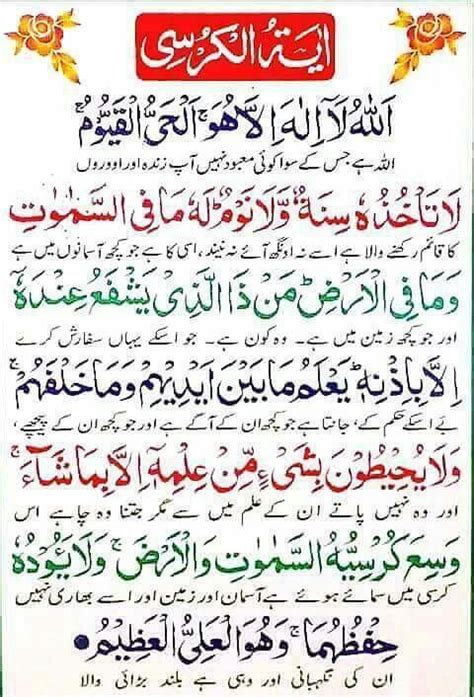 ایۃ الکرسی
اَللّٰهُ لَاۤ اِلٰهَ اِلَّا هُوَ ۚ اَلْحَیُّ الْقَیُّوْمُ ۚ
اللہ ہے جس کے سوا کوئی معبود نہیں آپ زندہ اور اوروں
لَا تَاْخُذُهٗ سِنَةٌ وَّلَا نَوْمٌ ؕ لَهٗ مَا فِی السَّمٰوٰتِ
کا قائم رکھنے والا ہے اسے نہ اونگھ آئے نہ نیند، اسی کا ہے جو کچھ آسمانوں میں ہے
وَمَا فِی الْاَرْضِ ؕ مَنْ ذَا الَّذِیْ یَشْفَعُ عِنْدَهٗۤ
اور جو کچھ زمین میں ہے۔ وہ کون ہے۔ جو اسکے یہاں سفارش کرے
اِلَّا بِاِذْنِهٖ ؕ یَعْلَمُ مَا بَیْنَ اَیْدِیْهِمْ وَمَا خَلْفَهُمْ ۚ
بے اسکے حکم کے، جانتا ہے جو کچھ ان کے آگے ہے اور جو کچھ ان کے پیچھے،
وَلَا یُحِیْطُوْنَ بِشَیْءٍ مِّنْ عِلْمِهٖۤ اِلَّا بِمَا شَآءَ ۚ
اور وہ نہیں پاتے ان کے علم میں سے مگر جتنا وہ چاہے اس
وَسِعَ کُرْسِیُّهُ السَّمٰوٰتِ وَالْاَرْضَ ۚ وَلَا یَـُٔوْدُهٗ
کرسی میں سمائے ہوئے ہے آسمان اور زمین اور اسے بھاری نہیں
حِفْظُهُمَا ۚ وَهُوَ الْعَلِیُّ الْعَظِیْمُ ●
ان کی نگہبانی اور وہی ہے بلند بڑائی والا